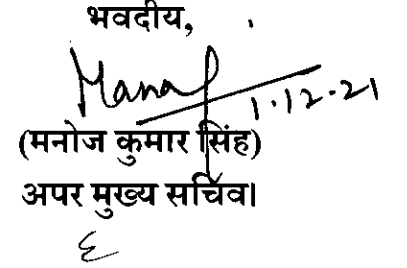 भवदीय,
1.12.21
(मनोज कुमार सिंह)
अपर मुख्य सचिव।